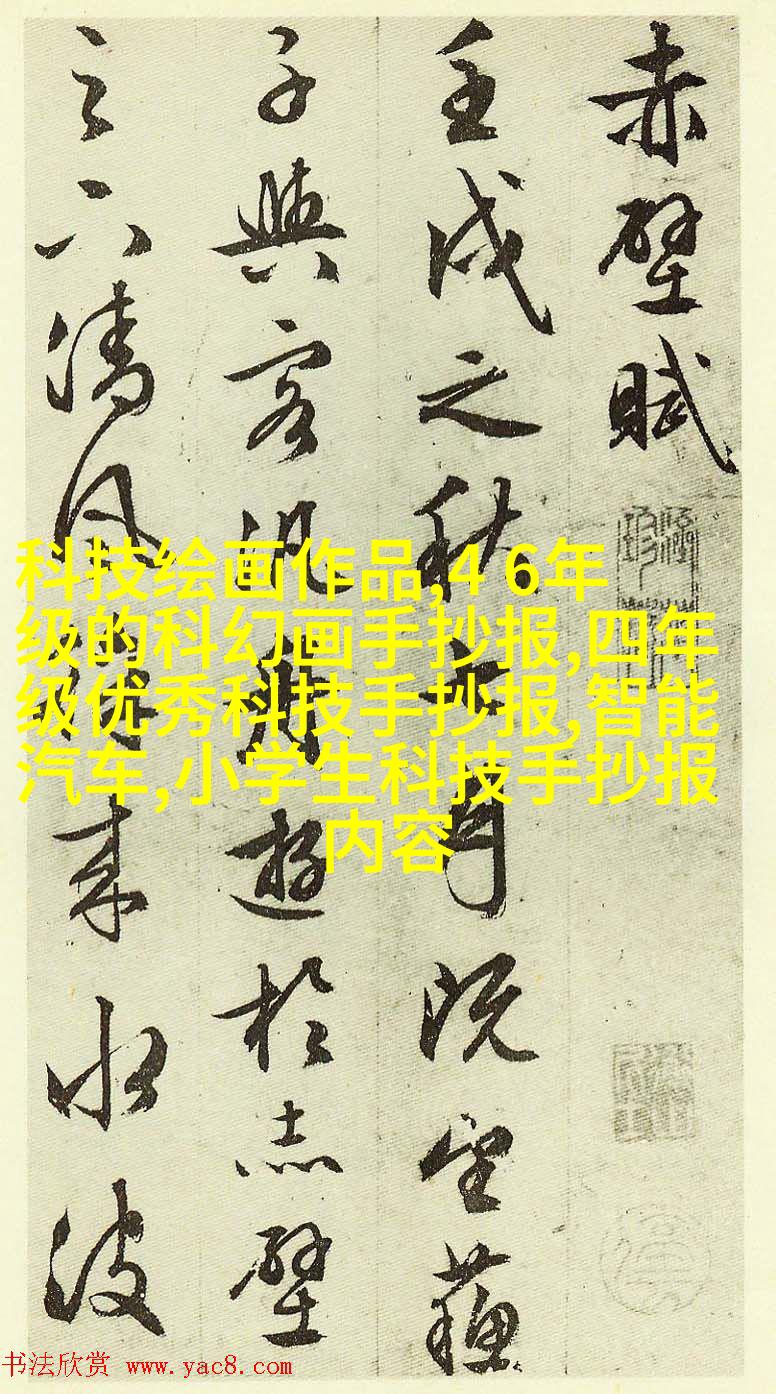 赤壁賦
壬戌之秋七月既望蘇
子與客泛舟遊於赤壁
之下清風徐來水波
科技绘画作品,4 6年
级的科幻画手抄报,四年
级优秀科技手抄报,智能
汽车,小学生科技手抄报
内容
书法欣赏 www.yac8.com